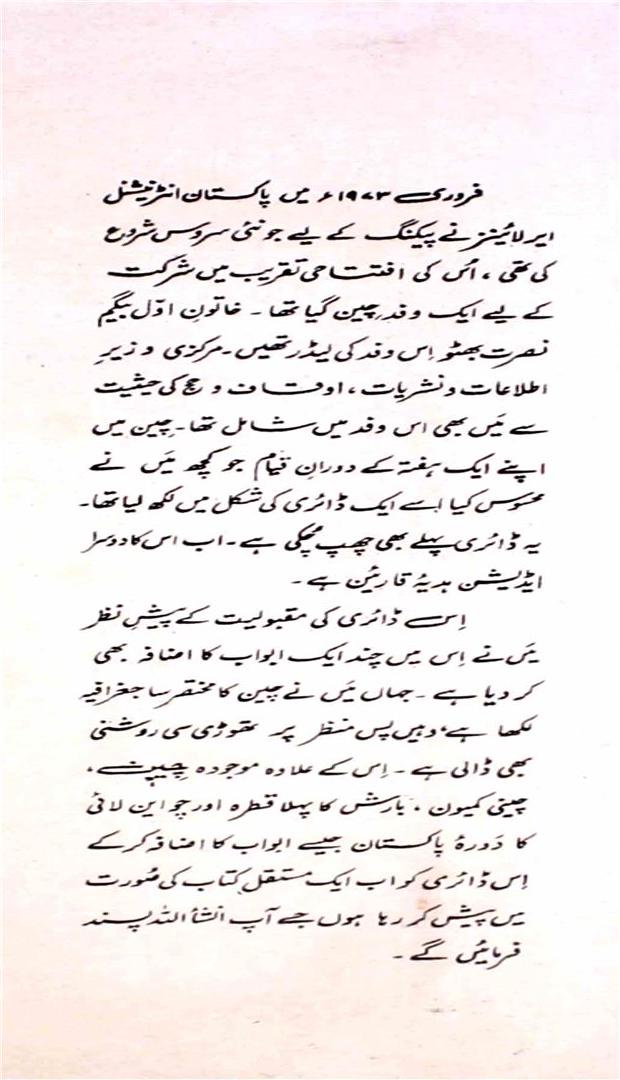 فروری ۱۹۷۳ء میں پاکستان انٹرنیشنل
ایر لائینز نے پیکنگ کے لیے جو نئی سروس شروع
کی تھی ، اُس کی افتتاحی تقریب میں شرکت
کے لیے ایک وفد چین گیا تھا ۔ خاتونِ اوّل بیگم
نصرت بھٹو اِس وفد کی لیڈر تھیں ۔ مرکزی وزیرِ
اطلاعات و نشریات ، اوقاف و حج کی حیثیت
سے مَیں بھی اس وفد میں شامل تھا ۔ چین میں
اپنے ایک ہفتہ کے دورانِ قیام جو کچھ مَیں نے
محسوس کیا اسے ایک ڈائری کی شکل میں لکھ لیا تھا ۔
یہ ڈائری پہلے بھی چھپ چُکی ہے ۔ اب اس کا دوسرا
ایڈیشن ہدیۂ قارئین ہے ۔
اِس ڈائری کی مقبولیت کے پیشِ نظر
مَیں نے اِس میں چند ایک ابواب کا اضافہ بھی
کر دیا ہے ۔ جہاں مَیں نے چین کا مختصر سا جغرافیہ
لکھا ہے ، وہیں پس منظر پر تھوڑی سی روشنی
بھی ڈالی ہے ۔ اِس کے علاوہ موجودہ چین ،
چینی کمیون ، بارش کا پہلا قطرہ اور چو این لائی
کا دَورۂ پاکستان جیسے ابواب کا اضافہ کر کے
اِس ڈائری کو اب ایک مستقل کتاب کی صُورت
میں پیش کر رہا ہوں جسے آپ انشأ اللہ پسند
فرمائیں گے ۔